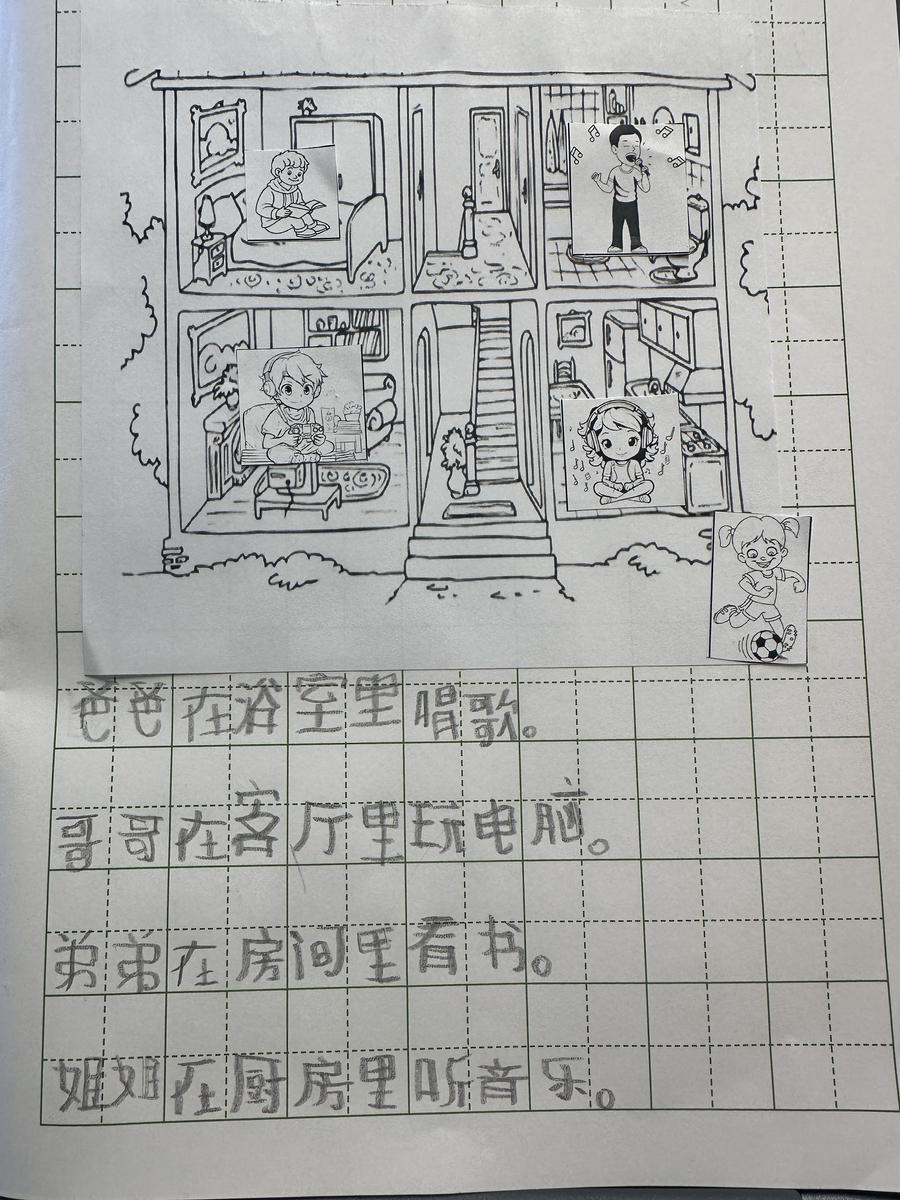 爸爸在浴室里唱歌。
哥哥在客厅里玩电脑。
弟弟在房间里看书。
姐姐在厨房里听音乐。